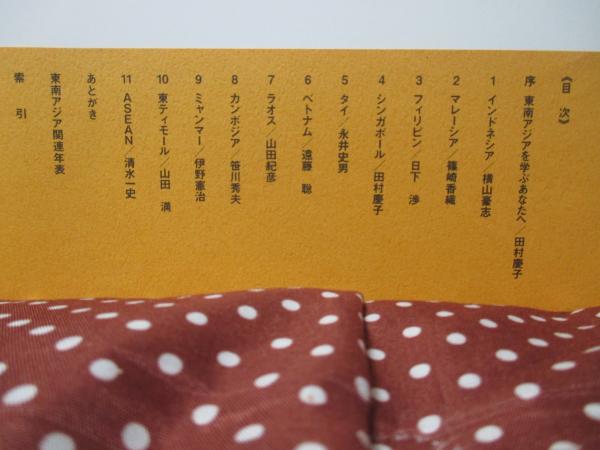 《目 次》
序 東南アジアを学ぶあなたへ/田村慶子
1 インドネシア/横山豪志
2 マレーシア/篠崎香織
3 フィリピン/日下 渉
4 シンガポール/田村慶子
5 タイ/永井史男
6 ベトナム/遠藤 聡
7 ラオス/山田紀彦
8 カンボジア/笹川秀夫
9 ミャンマー/伊野憲治
10 東ティモール/山田 満
11 ASEAN/清水一史
あとがき
東南アジア関連年表
索 引